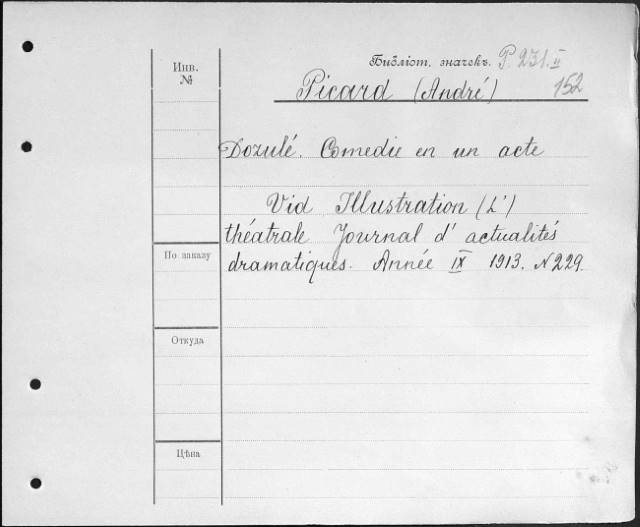 Инв.
№
Библіот. значекъ. P. 231.II
Picard (André) 152
Dozulé. Comedie en un acte
Vid Illustration (L')
théatrale Journal d' actualités
dramatiques. Année IX 1913. N 229.
По заказу
Откуда
Цѣна